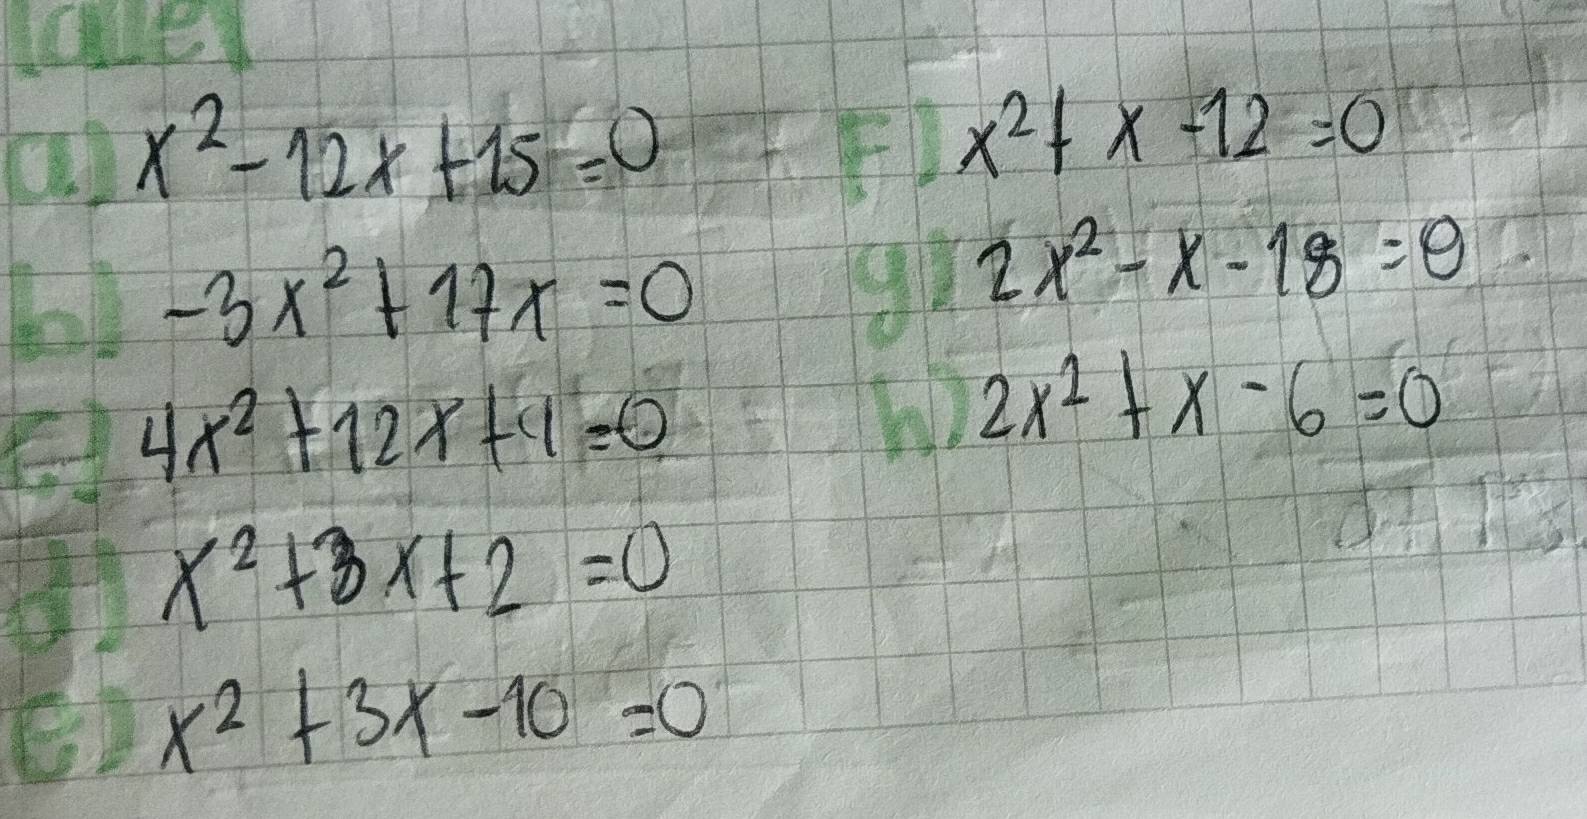 Taller
a) x² - 12x + 15 = 0
b) -3x² + 17x = 0
c) 4x² + 12x + 9 = 0
d) x² + 3x + 2 = 0
e) x² + 3x - 10 = 0
F) x² + x - 12 = 0
g) 2x² - x - 18 = 0
h) 2x² + x - 6 = 0